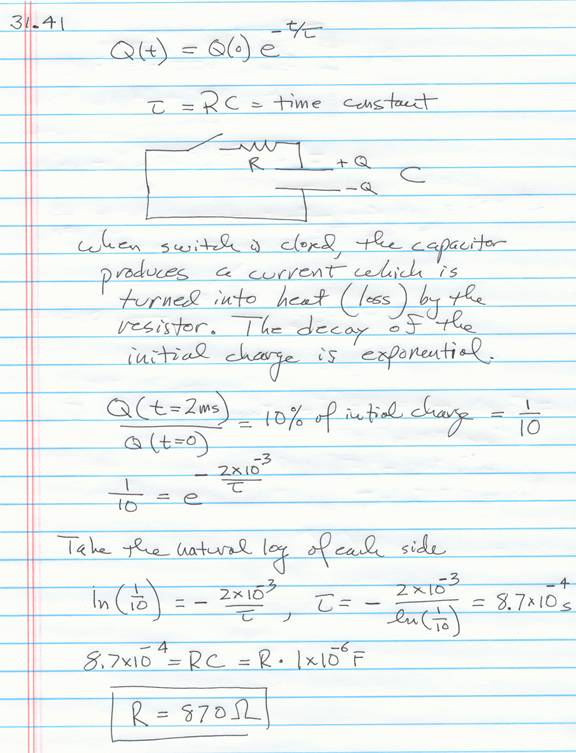 31.41
Q(t) = Q(0) e^{-t/τ}
τ = RC = time constant
R +Q
-Q C
when switch is closed, the capacitor
produces a current which is
turned into heat (loss) by the
resistor. The decay of the
initial charge is exponential.
Q(t=2ms)/Q(t=0) = 10% of intial charge = 1/10
1/10 = e^{-2×10^{-3}/τ}
Take the natural log of each side
ln(1/10) = -2×10^{-3}/τ, τ = -2×10^{-3}/ln(1/10) = 8.7×10^{-4} s
8.7×10^{-4} = RC = R · 1×10^{-6} F
R = 870 Ω